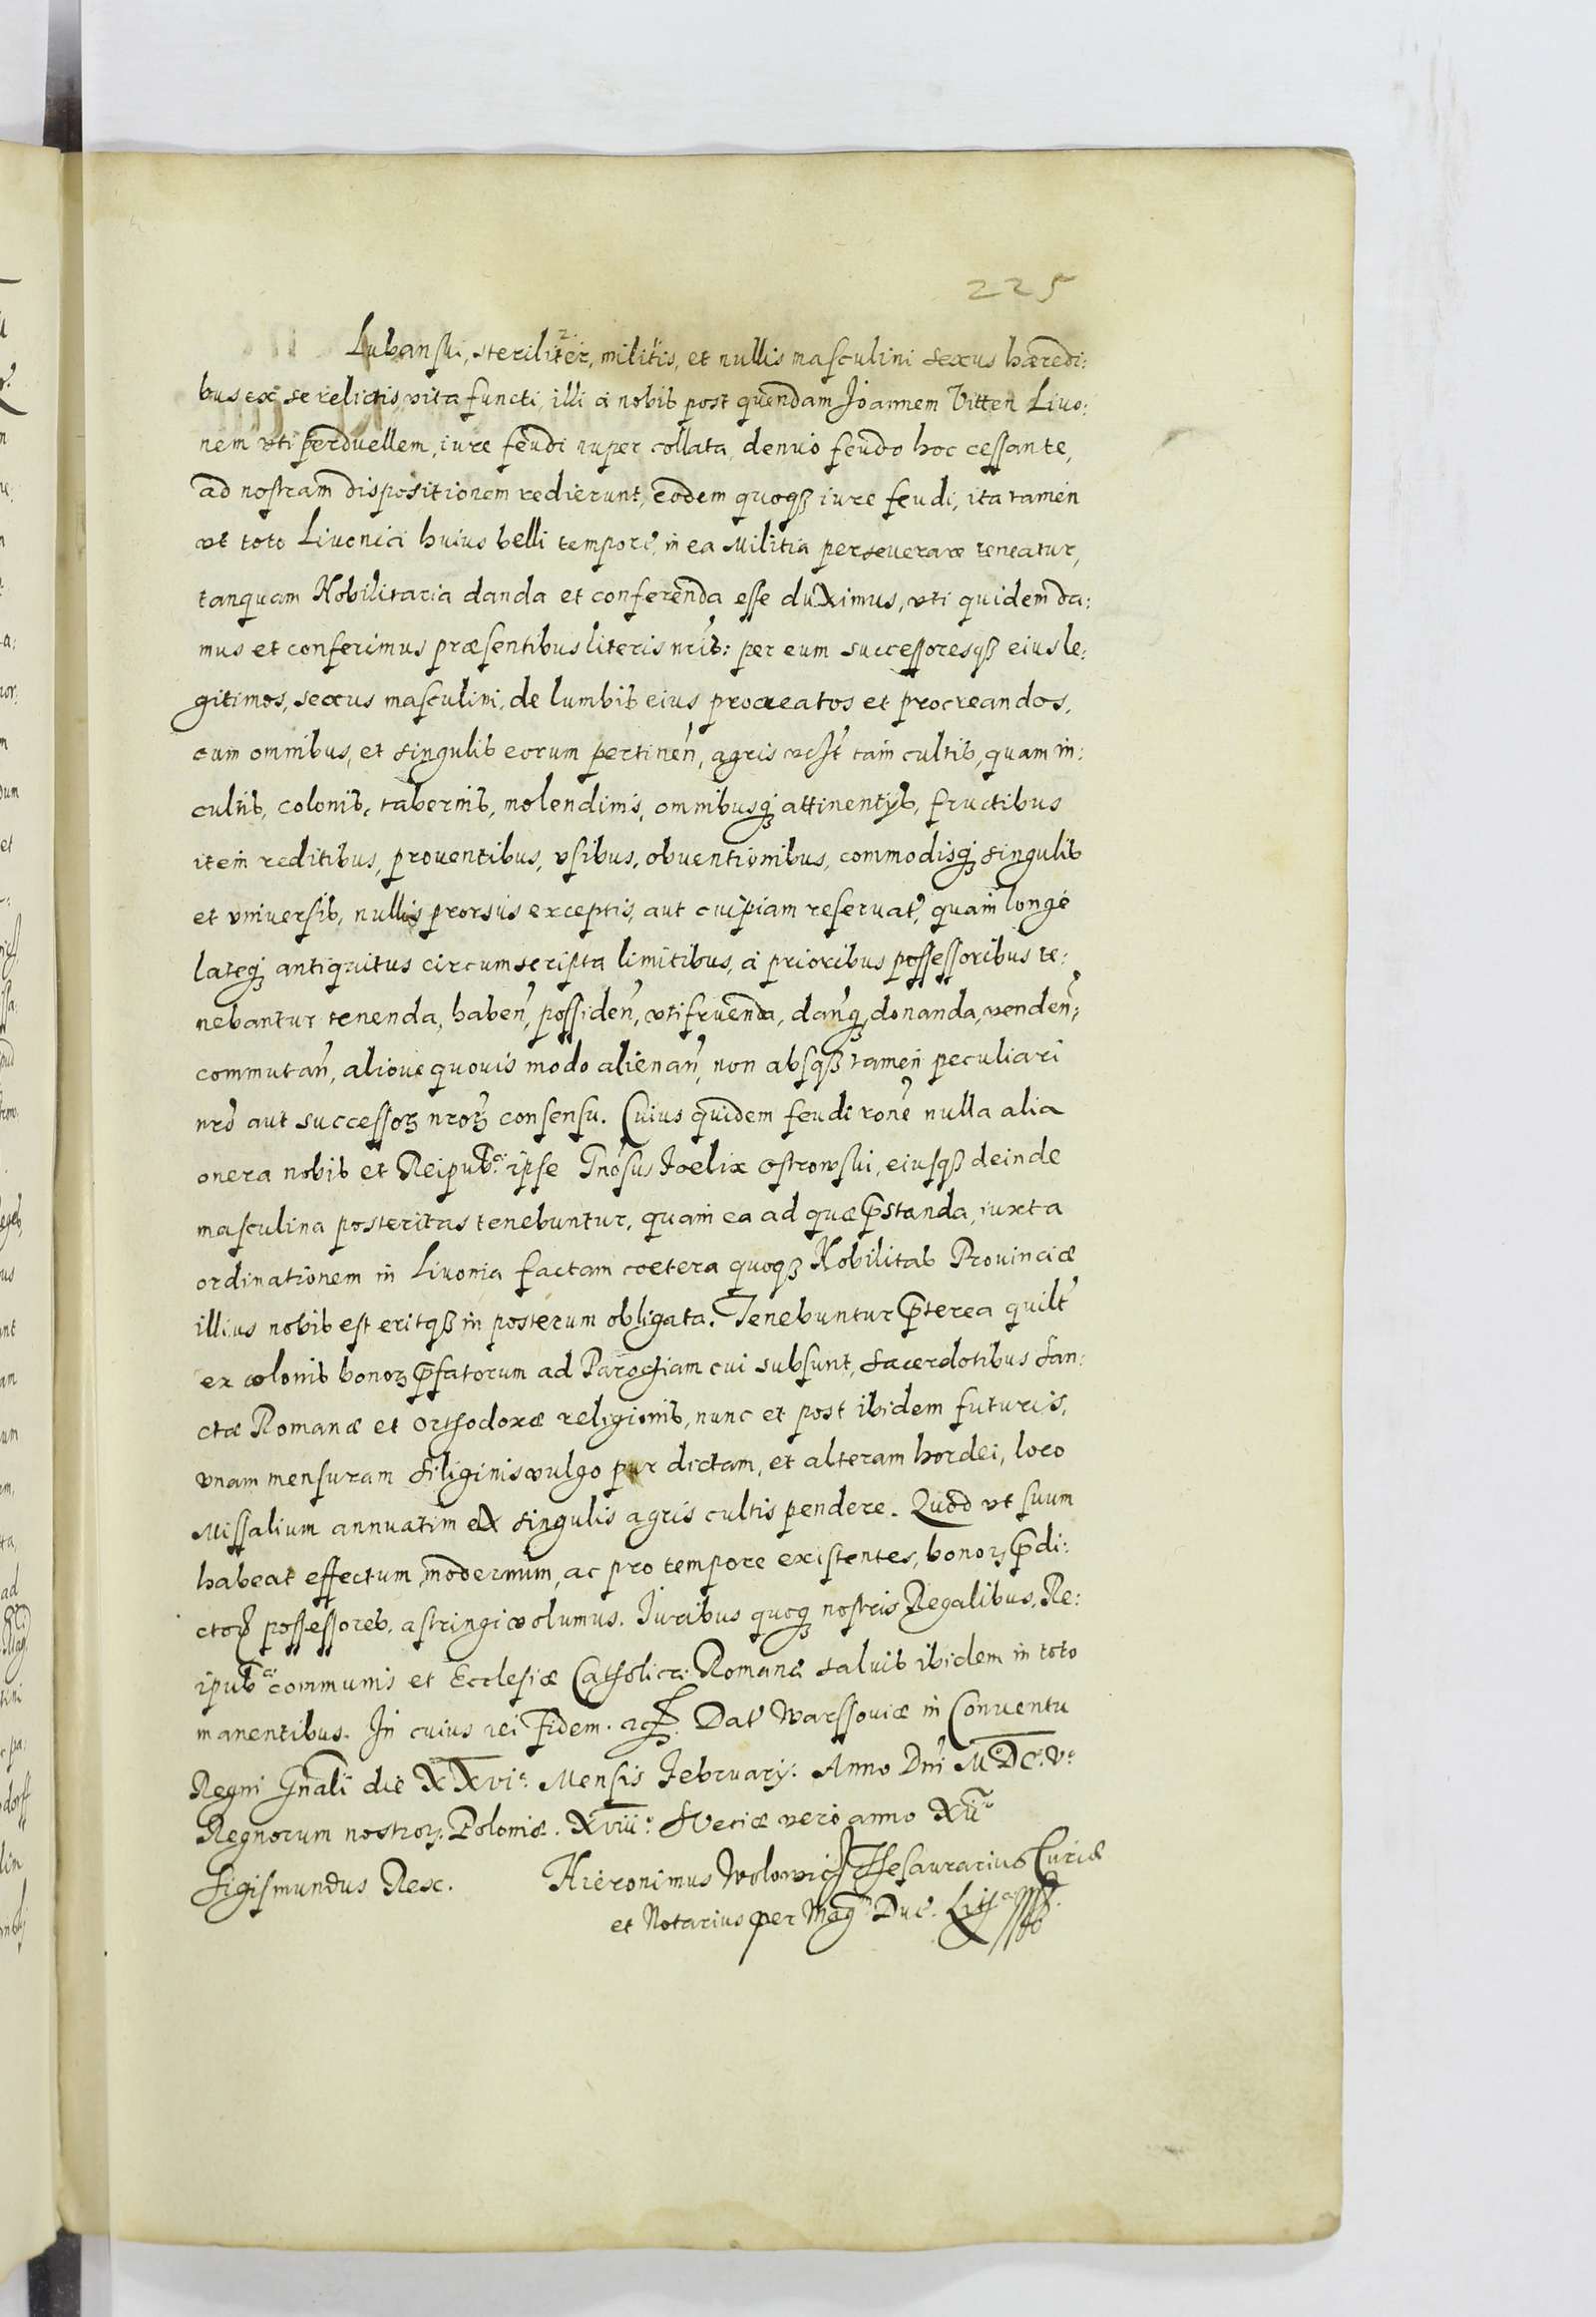 225
Lubanski, steriliter, militis, et nullis masculini sexus hæredi:
bus ex se relictis, vita functi, illi à nobis post quendam Joannem Vitten Livo:
nem vti perduellem, iure feudi nuper collata, denuo feudo hoc cessante,
ad nostram dispositionem redierunt, eodem quoqȝ iure feudi, ita tamen
vt toto Livonici huius belli tempore, in ea Militia perseverare teneatur,
tanquam Nobilitaria danda et conferenda esse duximus, vti quidem da:
mus et conferimus præsentibus literis nrīs: per eum successoresqȝ eius le:
gitimos, sexus masculini, de lumbis eius procreatos et procreandos,
cum omnibus, et singulis eorum pertinen̄, agris tam cultis, quam in:
cultis, colonis, tabernis, molendinis, omnibusqȝ attinentijs, fructibus
item reditibus, proventibus, vsibus, obventionibus, commodisqȝ singulis
et vniversis, nullis prorsus exceptis, aut cuipiam reservat', quam longè
lateqȝ antiquitus circumscripta limitibus, à prioribus possessoribus te:
nebantur tenenda, haben', possiden', vtifruenda, dan'qȝ, donanda, venden',
commutan', aliove quovis modo alienan', non absqȝ tamen peculiari
nrō aut successoꝝ nroꝝ consensu. Cuius quidem feudi rōne nulla alia
onera nobis et Reipub:cæ ipse Gnōsus Fœlix Ostrowski, eiusqȝ deinde
masculina posteritas tenebuntur, quam ea ad quæ p̄standa, iuxta
ordinationem in Livonia factam cœtera quoqȝ Nobilitas Provinciæ
illius nobis est eritqȝ in posterum obligata. Tenebuntur p̄terea quilt'
ex colonis bonoꝝ p̄fatorum ad Parochiam cui subsunt, sacerdotibus san:
ctæ Romanæ et Orthodoxæ religionis, nunc et post ibidem futuris,
vnam mensuram siliginis vulgo pur dictam, et alteram hordei, loco
Missalium annuatim ex singulis agris cultis pendere. Quod vt suum
habeat effectum, modernum, ac pro tempore existentes, bonoꝝ p̄di:
ctoꝝ possessores, astringi volumus. Iuribus quoqȝ nostris Regalibus, Re:
ipub:cæ communis et Ecclesiæ Catholicæ Romanæ salvis ibidem in toto
manentibus. In cuius rei Fidem. Dat' Warssoviæ in Conventu
Regni Gn̄ali die XXvi.° Mensis February: Anno Dn̄i M.°DC.°V.°
Regnorum nostroꝝ. Poloniæ. Xviii.° Sveciæ vero anno XII.°
Sigismundus Rex. Hieronimus Wolowicz Thesaurarius Curiæ
et Notarius per Mag. Duc. Lith.